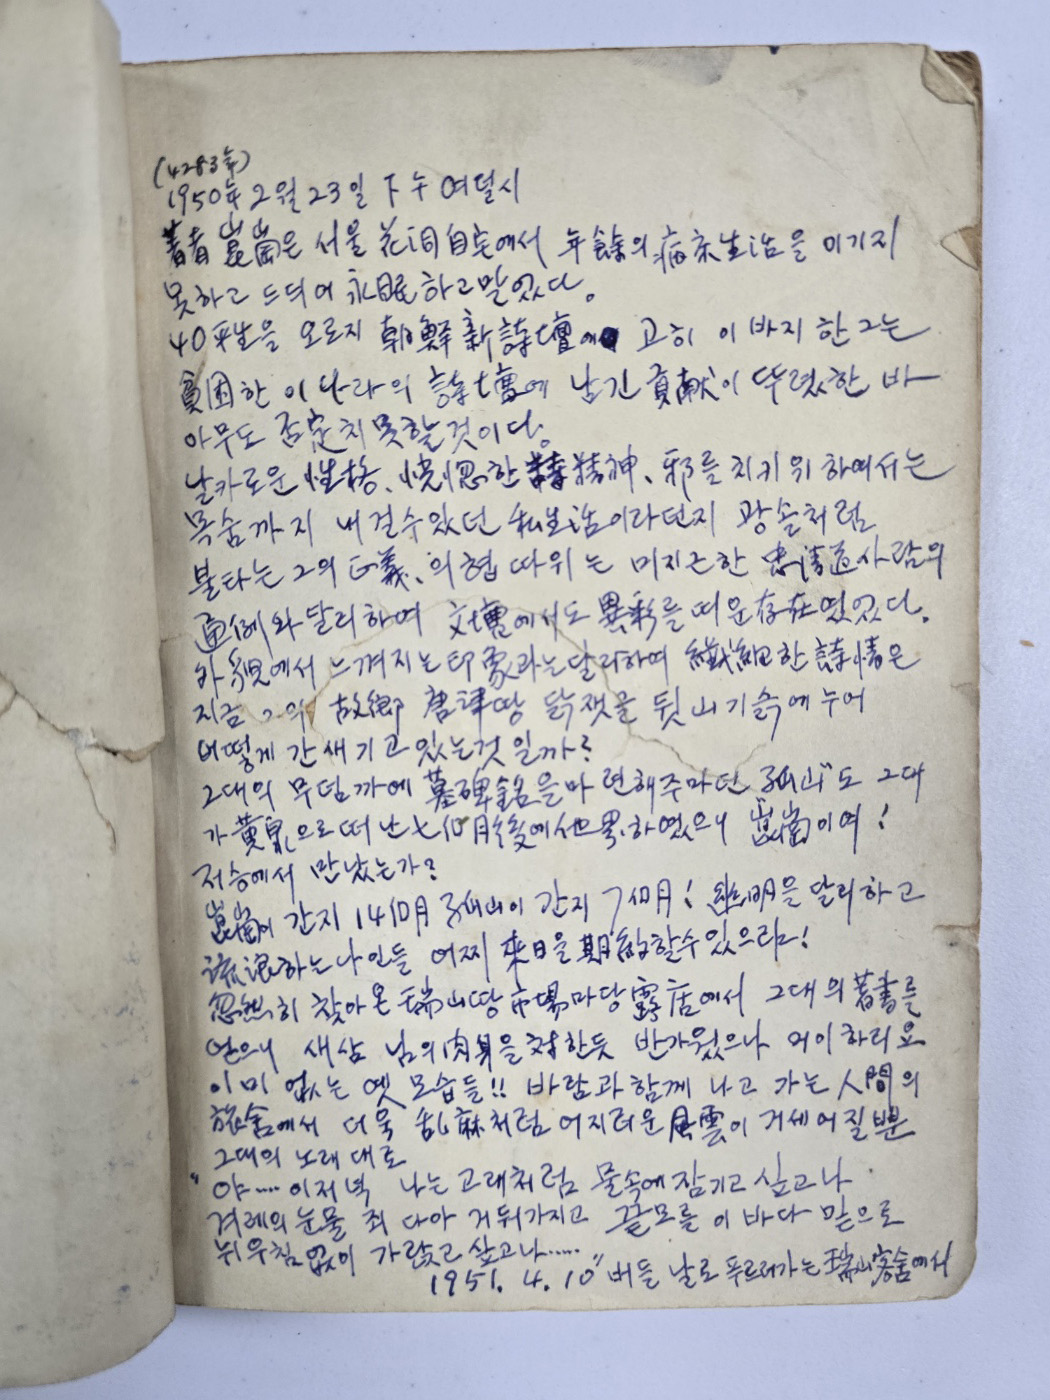 (4283年)
1950年 2월 23일 下午 여덜시
著者 崑崗은 서울 花洞 自宅에서 年餘의 病床生活을 이기지
못하고 드듸어 永眠하고말었다.
40平生을 오로지 朝鮮新詩壇에 고히 이바지한 그는
貧困한 이나라의 詩壇에 남긴 貢献이 뚜렸한 바
아무도 否定치못할것이다.
날카로운 性格、恍惚한 詩精神、邪를 지키위하여서는
목숨까지 내걸수있던 私生活이라던지 광솔처럼
불타는 그의 正義、의협 따위는 미지근한 忠淸道사람의
通例와달리하여 文壇에서도 異彩를 띠운存在였었다.
外貌에서 느껴지는印象과는달리하여 纖細한 詩情은
지금 그의 故鄕 唐津땅 닭잿골 뒷山기슭에누어
어떻게 간새기고있는것일까?
그대의 무덤까에 墓碑銘을마련해주마던 孤山도 그대
가 黃泉으로떠난七個月後에他界하였으니 崑崗이여!
저승에서 만났는가?
崑崗이 간지 14個月 孤山이 간지 7個月! 幽明을 달리하고
流浪하는나인들 어찌 來日을期約할수있으랴!
忽然히 찾아온 瑞山땅市場마당露店에서 그대의著書를
얻으니 새삼 님의肉身을対한듯 반가웠으나 어이하리요
이미 없는 옛 모습들!! 바람과함께 나고 가는人間의
旅舍에서 더욱 乱麻처럼어지러운風雲이 거세어질뿐
그대의 노래대로
"야…… 이저녁 나는고래처럼 물속에잠기고 싶고나
겨레의눈물 죄 다아 거둬가지고 끝모를 이 바다 밑으로
뉘우침없이 가랁고싶고나……"
1951. 4. 10 버들 날로 푸르러가는 瑞山客舍에서